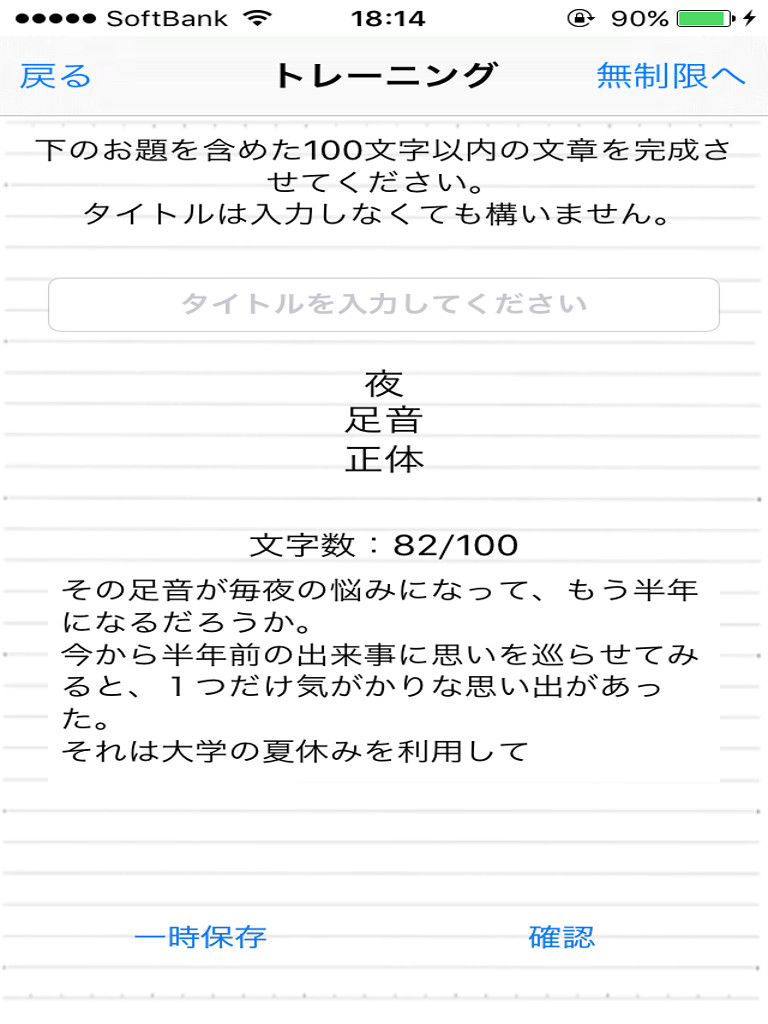 ●●●●● SoftBank 18:14 90%
戻る トレーニング 無制限へ
下のお題を含めた100文字以内の文章を完成さ
せてください。
タイトルは入力しなくても構いません。
タイトルを入力してください
夜
足音
正体
文字数：82/100
その足音が毎夜の悩みになって、もう半年
になるだろうか。
今から半年前の出来事に思いを巡らせてみ
ると、１つだけ気がかりな思い出があっ
た。
それは大学の夏休みを利用して
一時保存 確認